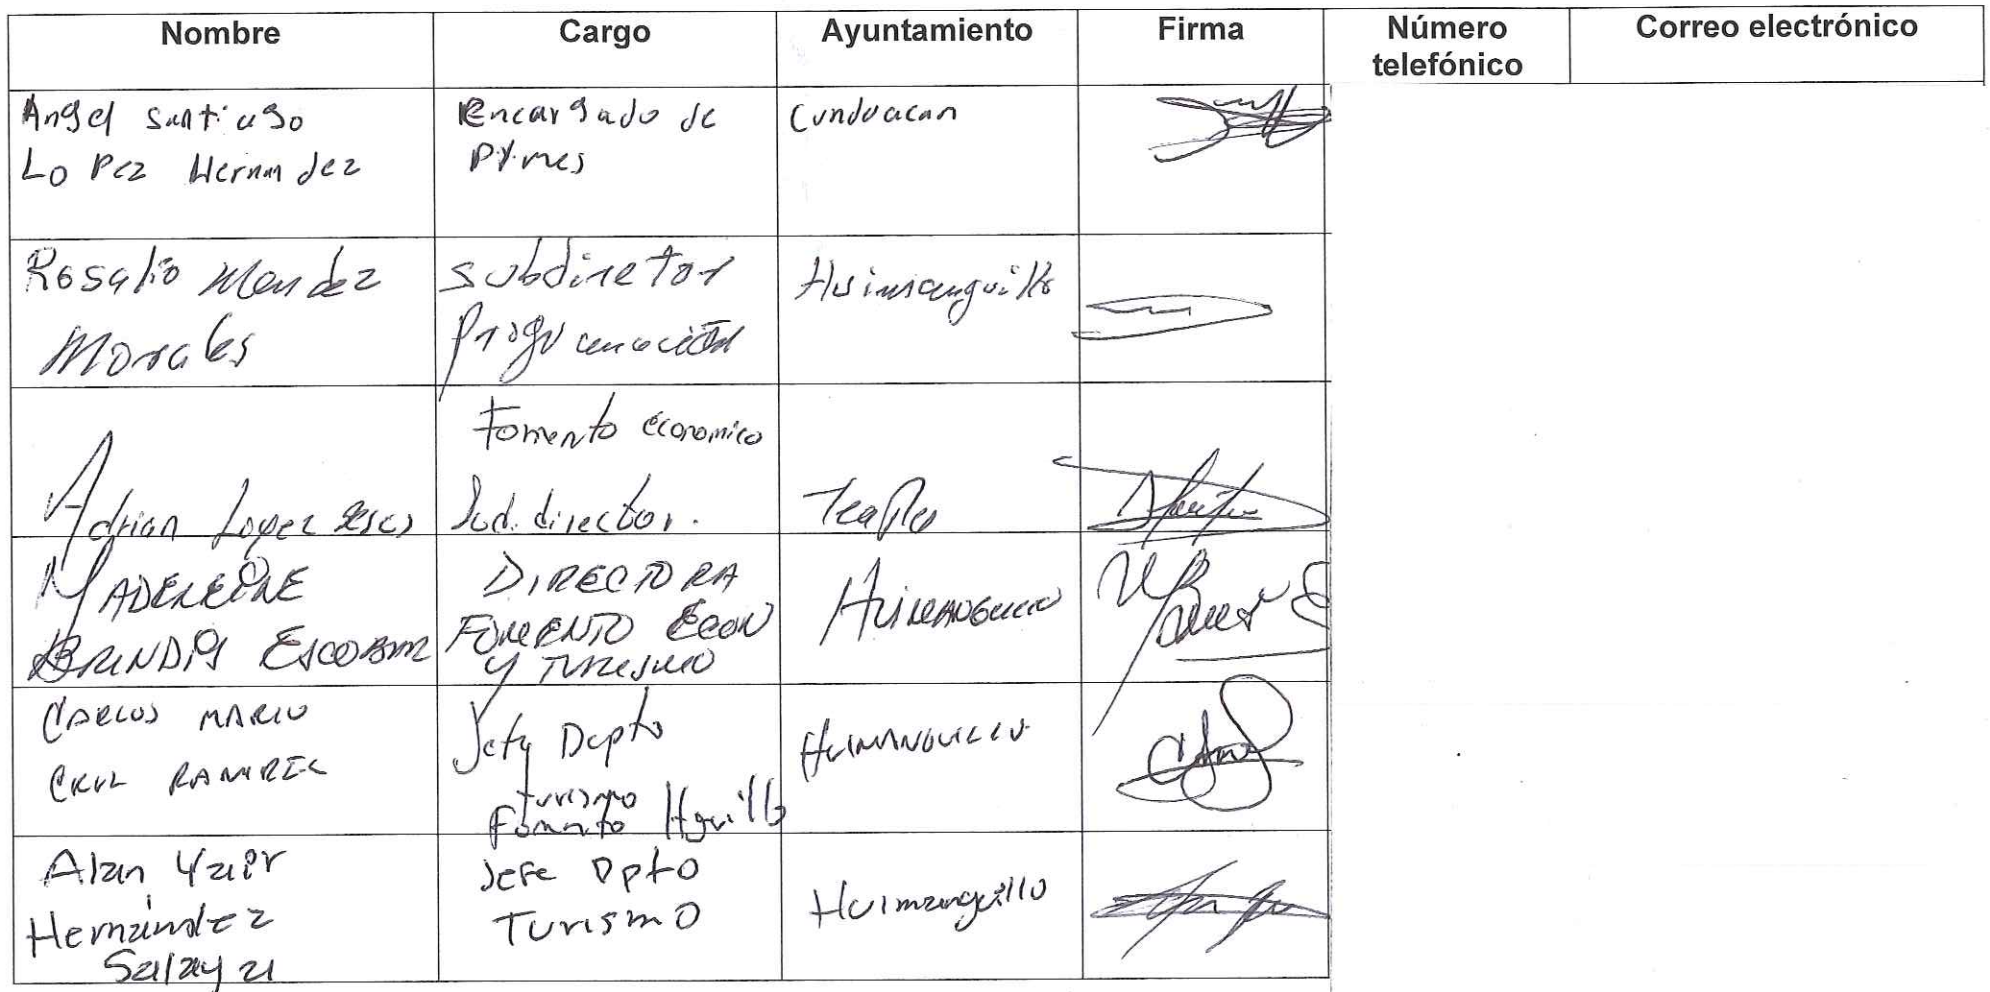 Nombre Cargo Ayuntamiento Firma Número telefónico Correo electrónico
Angel Santiago
Lopez Hernandez
Encargado de
Pymes
Cunduacan
Rosalio Mendez
Morales
Subdiretor
Programación
Huimanguillo
Adrian Lopez
Fomento economico
Sud. director.
Teapa
MADELEINE
BRINDIS ESCOBAR
DIRECTORA
FOMENTO ECON
Y TURISMO
HUIMANGUILLO
CARLOS MARIO
CRUZ RAMIREZ
Jefe Depto
turismo
Fomento Hguillo
HUIMANGUILLO
Alan Yair
Hernández
Salaya
Jefe Dpto
Turismo
Huimanguillo